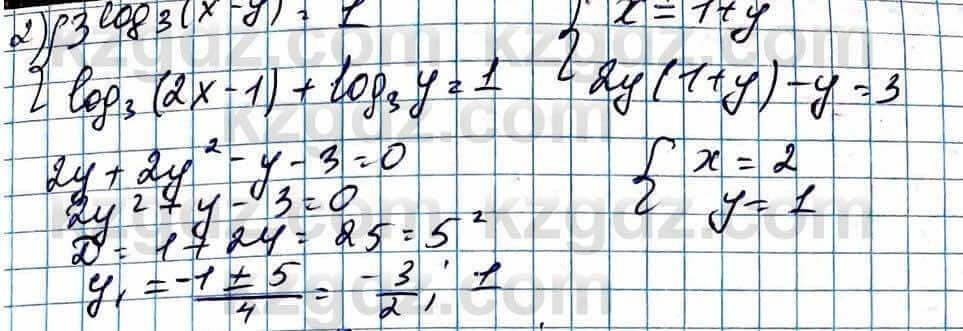 2) { 3^{log₃(x-y)} = 1
{ log₃(2x-1) + log₃y = 1
{ x = 1+y
{ 2y(1+y) - y = 3
2y + 2y² - y - 3 = 0
2y² + y - 3 = 0
D = 1 + 24 = 25 = 5²
y₁ = \frac{-1 ± 5}{4} = -\frac{3}{2}; 1
{ x = 2
{ y = 1
kzgdz.com
kzgdz.com
kzgdz.com
kzgdz.com
kzgdz.com
kzgdz.com